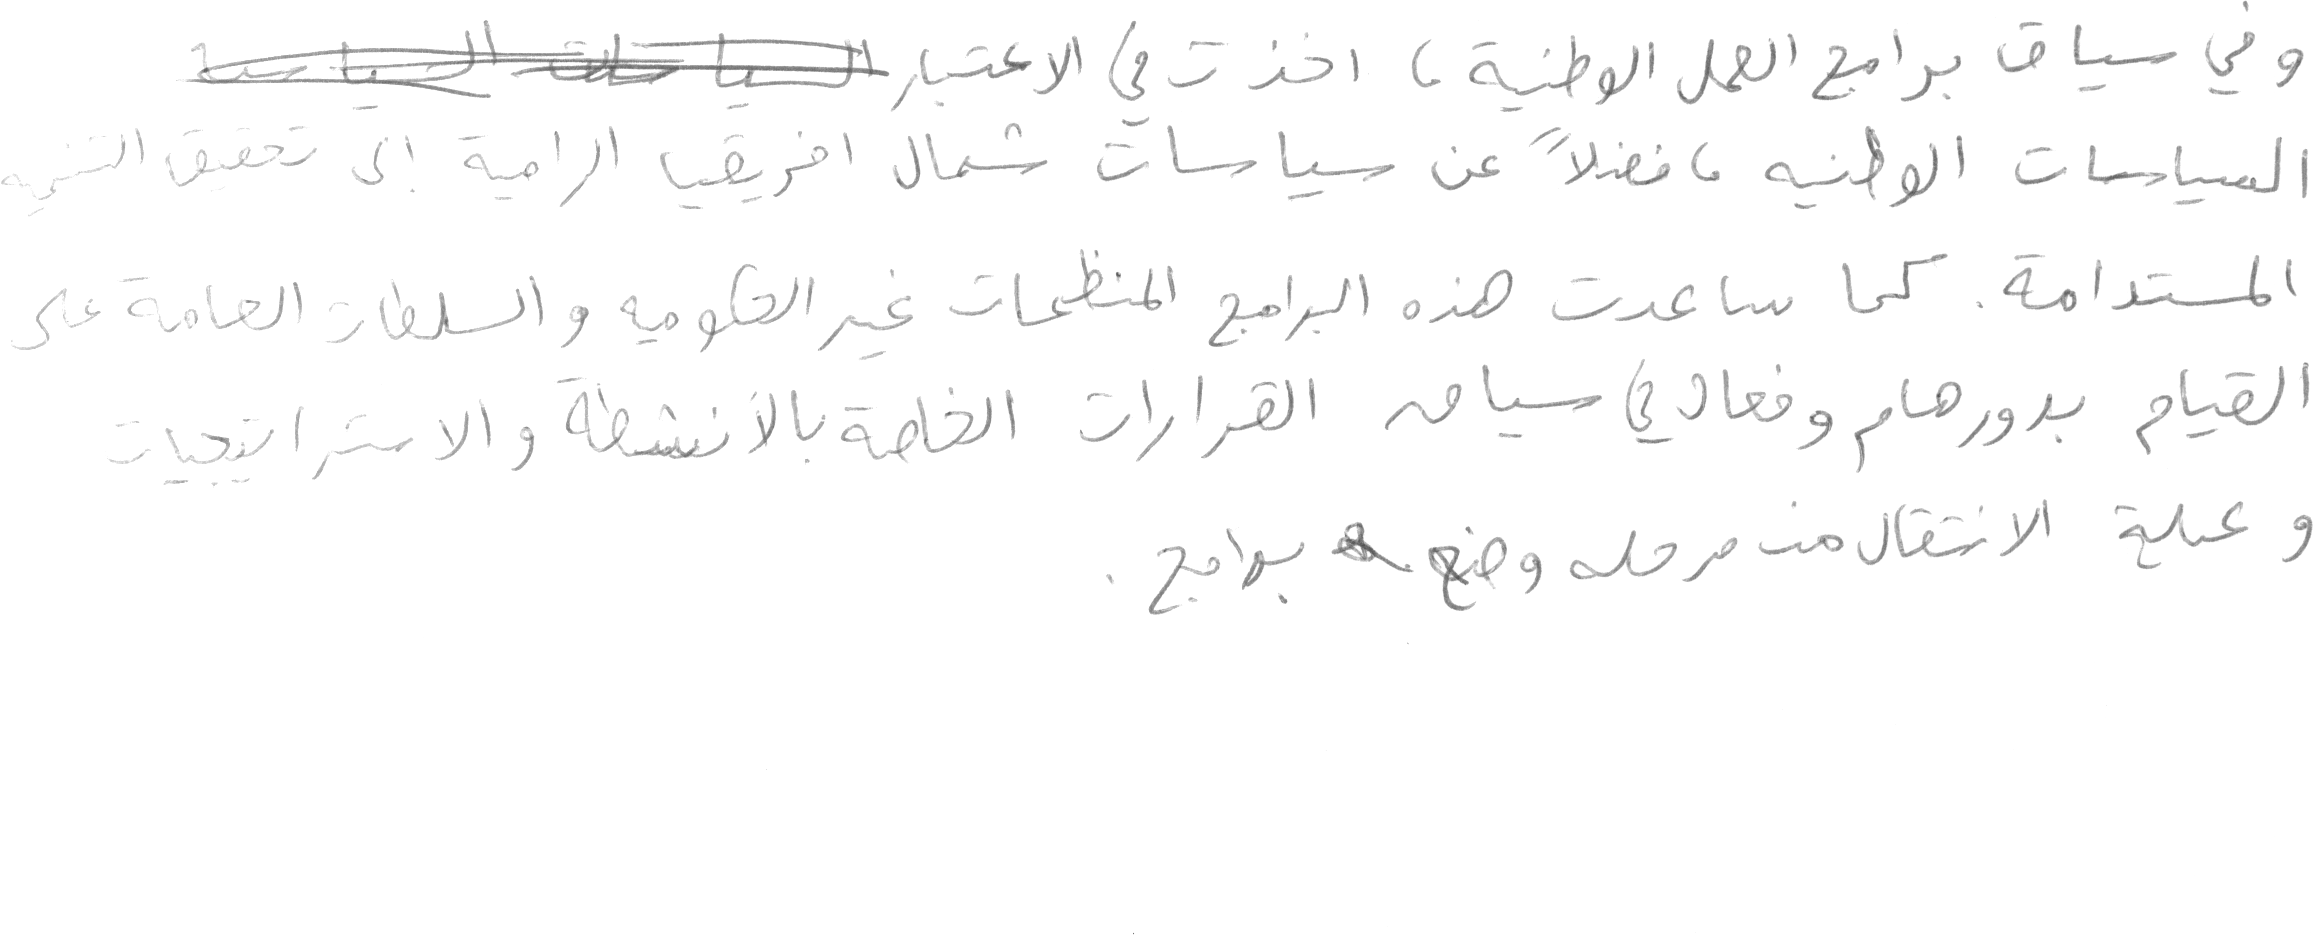 وفي سياق برامج العمل الوطنية ، اخذت في الاعتبار
السياسات الوطنيه ، فضلاً عن سياسات شمال افريقيا الرامية إلى تحقيق التنميه
المستدامة . كما ساعدت هذه البرامج المنظمات غير الحكوميه والسلطات العامة على
القيام بدور هام وفعال في سياق القرارات الخاصة بالأنشطة والاستراتيجيات
وعملية الانتقال من مرحله وضع برامج .